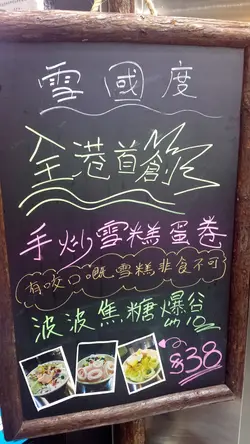 雪國度
全港首創
手炒雪糕蛋卷
有咬口嘅雪糕非食不可
波波焦糖爆谷
$38